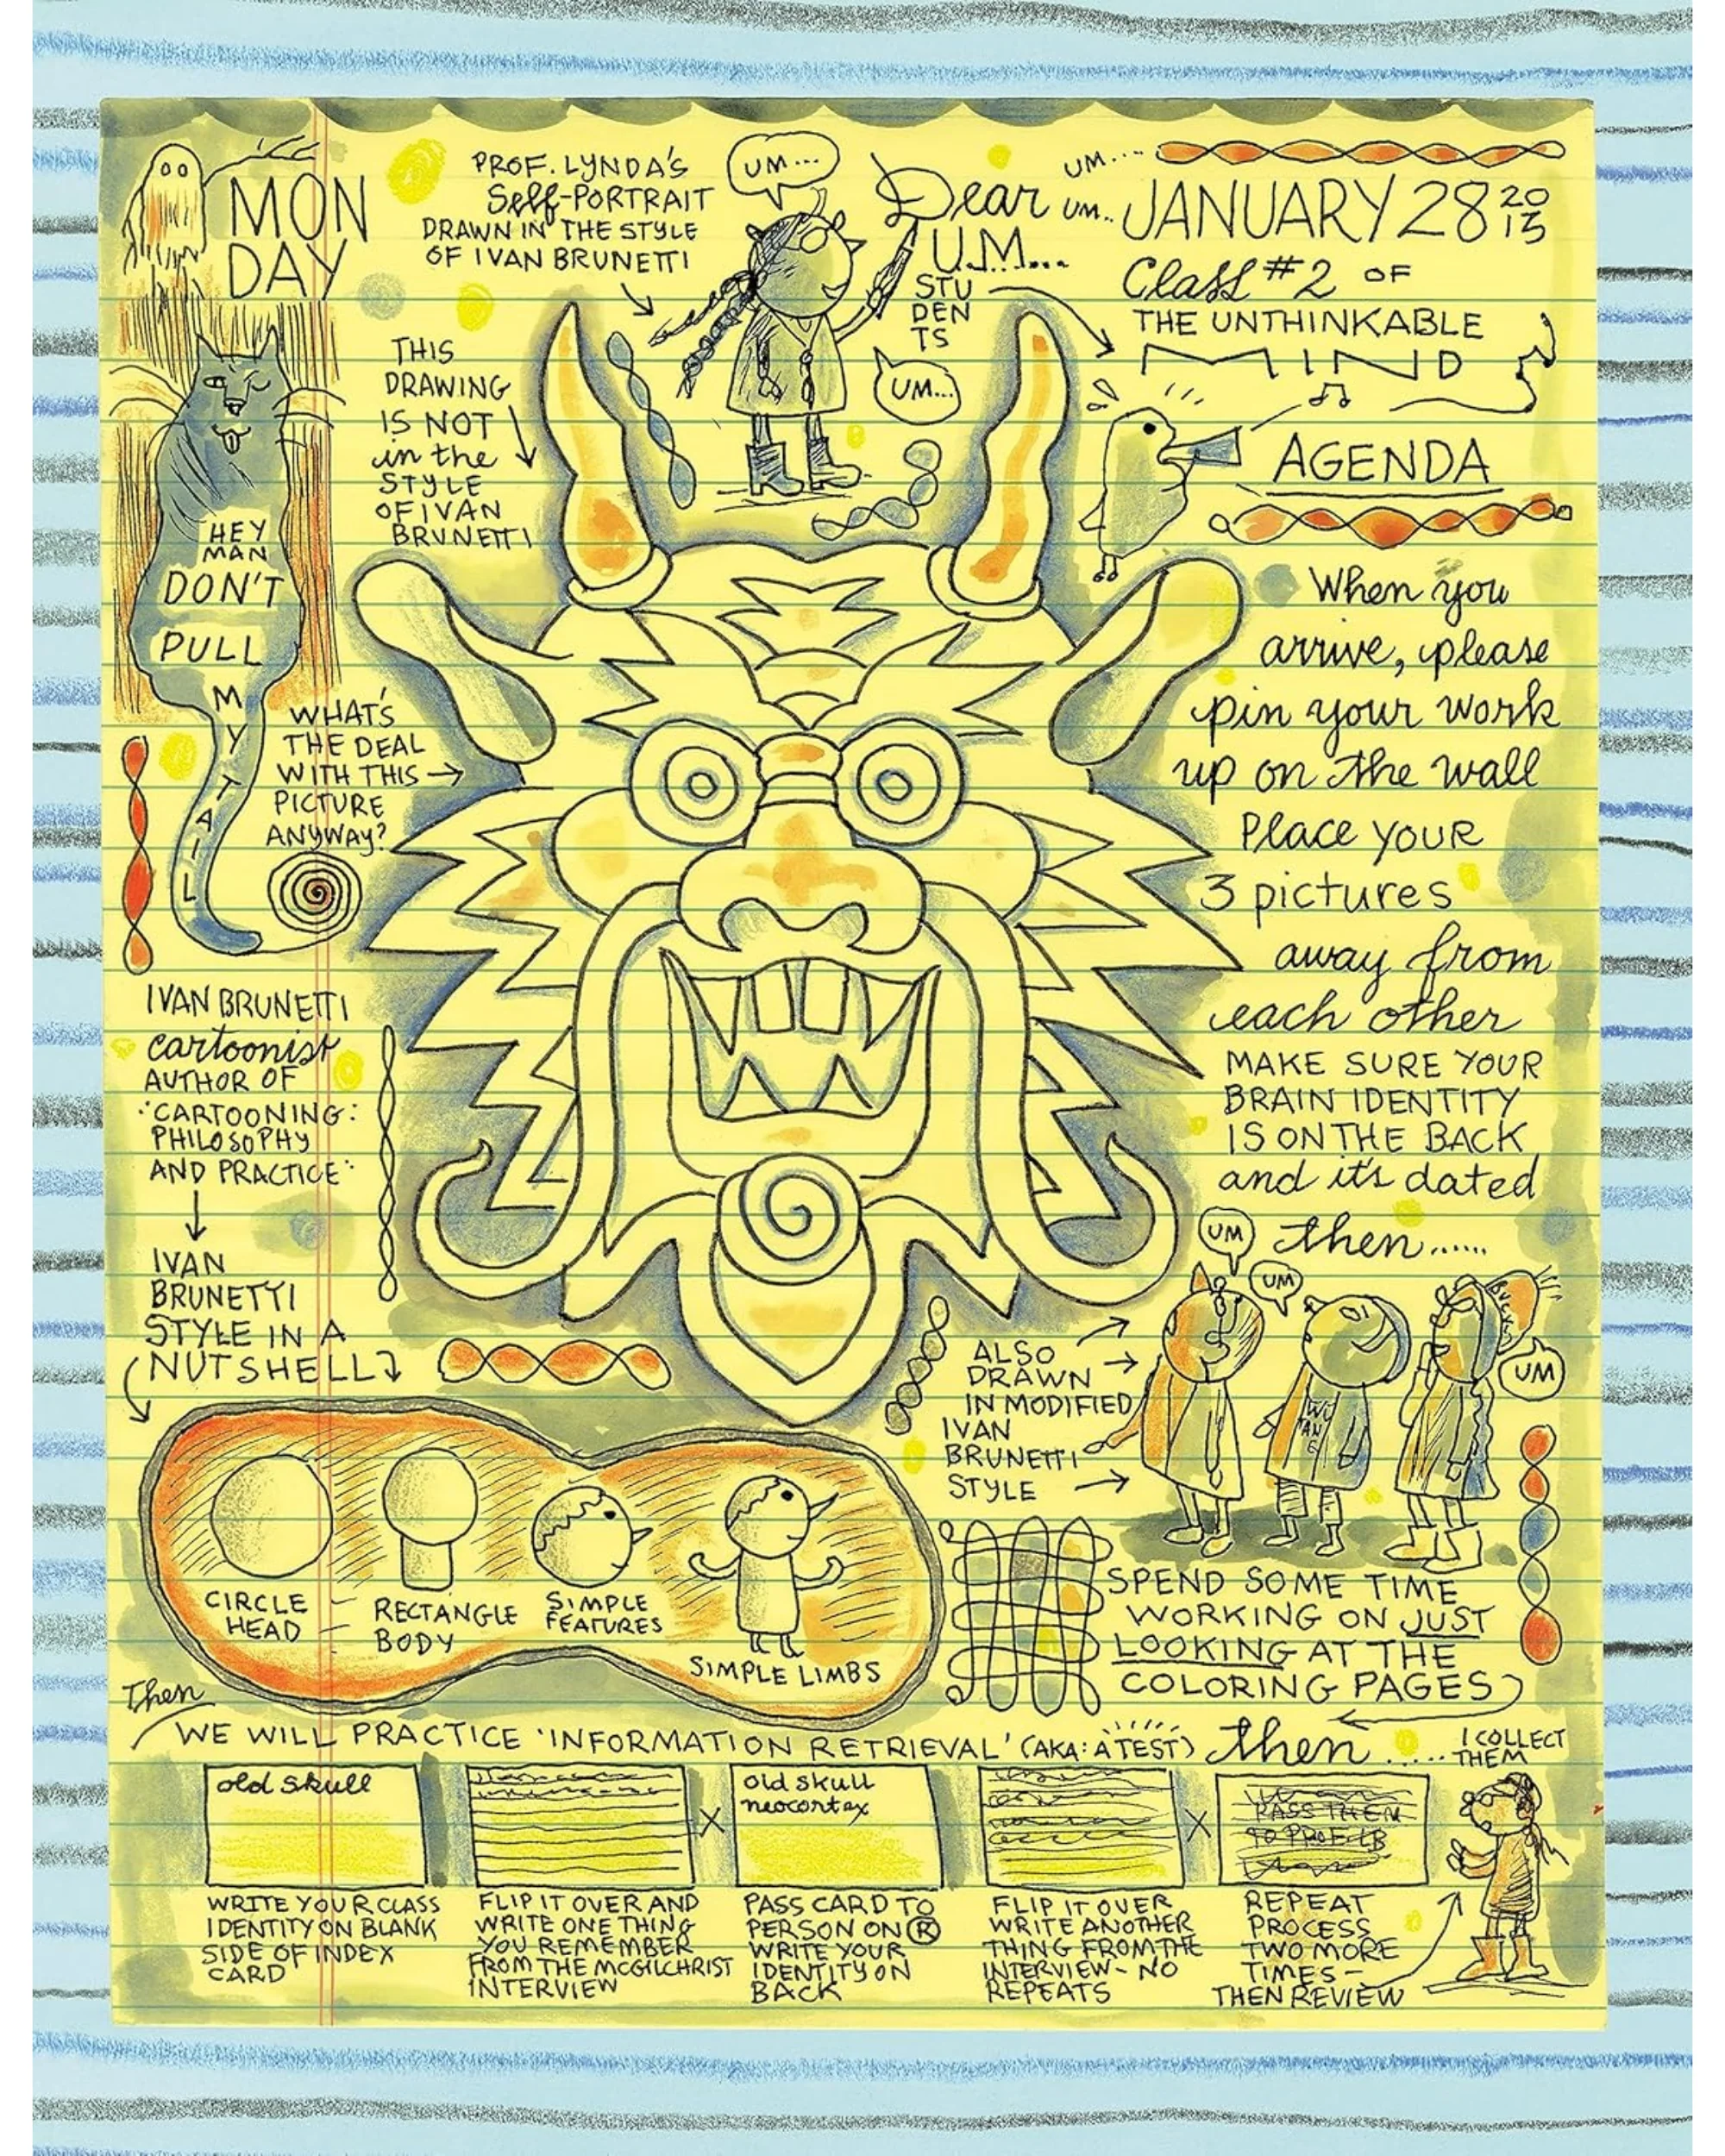 MON
DAY
PROF. LYNDA'S
Self-PORTRAIT
DRAWN IN THE STYLE
OF IVAN BRUNETTI
UM...
Dear
U.M...
STU
DEN
TS
UM...
UM....
UM..
JANUARY 28 20
13
Class #2 OF
THE UNTHINKABLE
MIND
AGENDA
THIS
DRAWING
IS NOT
in the
STYLE
OF IVAN
BRUNETTI
HEY
MAN
DON'T
PULL
M
Y
T
A
I
L
WHAT'S
THE DEAL
WITH THIS
PICTURE
ANYWAY?
When you
arrive, please
pin your work
up on the wall
Place YOUR
3 pictures
away from
each other
MAKE SURE YOUR
BRAIN IDENTITY
IS ON THE BACK
and it's dated
then......
UM
UM
UM
IVAN BRUNETTI
cartoonist
AUTHOR OF
"CARTOONING:
PHILOSOPHY
AND PRACTICE"
IVAN
BRUNETTI
STYLE IN A
NUTSHELL
CIRCLE
HEAD
RECTANGLE
BODY
SIMPLE
FEATURES
SIMPLE LIMBS
ALSO
DRAWN
IN MODIFIED
IVAN
BRUNETTI
STYLE
WU
TANG
SPEND SOME TIME
WORKING ON JUST
LOOKING AT THE
COLORING PAGES
Then
WE WILL PRACTICE 'INFORMATION RETRIEVAL' (AKA: A TEST) then.....
I COLLECT
THEM
old skull
old skull
neocortex
PASS THEM
TO PROF LB
WRITE YOUR CLASS
IDENTITY ON BLANK
SIDE OF INDEX
CARD
FLIP IT OVER AND
WRITE ONE THING
YOU REMEMBER
FROM THE MCGILCHRIST
INTERVIEW
X
PASS CARD TO
PERSON ON R
WRITE YOUR
IDENTITY ON
BACK
FLIP IT OVER
WRITE ANOTHER
THING FROM THE
INTERVIEW - NO
REPEATS
X
REPEAT
PROCESS
TWO MORE
TIMES -
THEN REVIEW